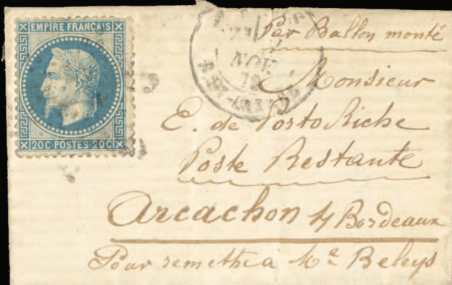 EMPIRE FRANÇAIS
20C POSTES 20C
NOV.
70
Par Ballon monté
Monsieur
E. de Porto Riche
Poste Restante
Arcachon
Bordeaux
Pour remettre à Me Beleys